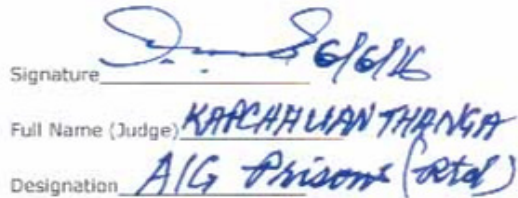 Signature 6/6/16
Full Name (Judge) KAPCHHUAN THANGA
Designation AIG Prisons (Rtd)